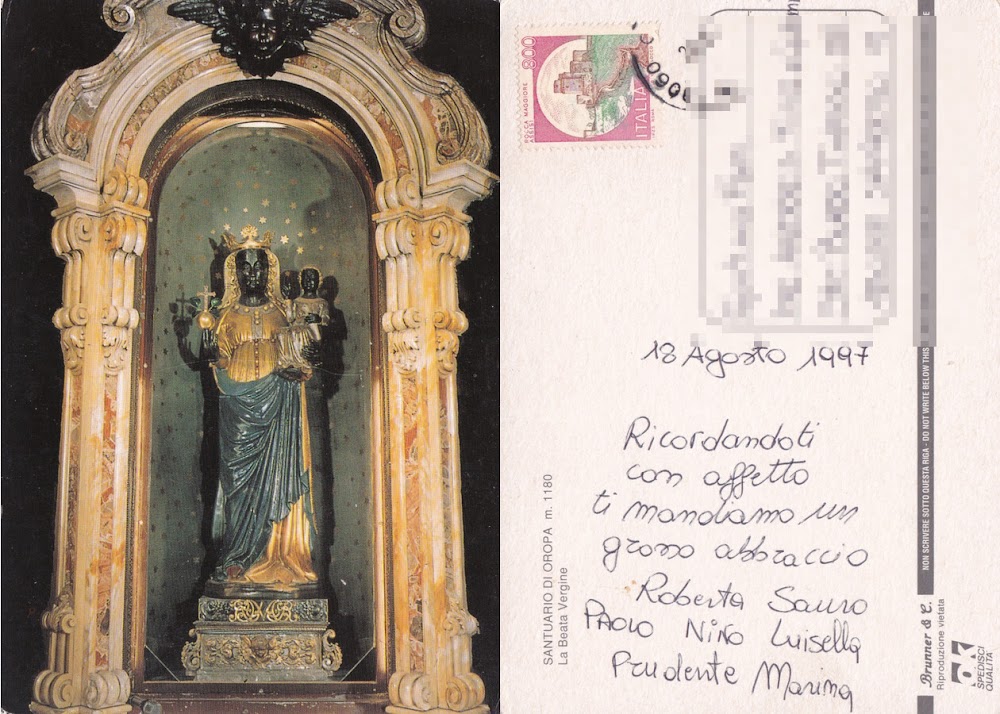 800
ROCCA MAGGIORE
ASSISI
ITALIA
060
18 Agosto 1997
Ricordandoti
con affetto
ti mandiamo un
grosso abbraccio
Roberta Sauro
PAOLO NINO Luisella
Prudente Marina
SANTUARIO DI OROPA m. 1180
La Beata Vergine
NON SCRIVERE SOTTO QUESTA RIGA - DO NOT WRITE BELOW THIS
Brunner & C.
Riproduzione vietata
SPEDISCI
QUALITÀ